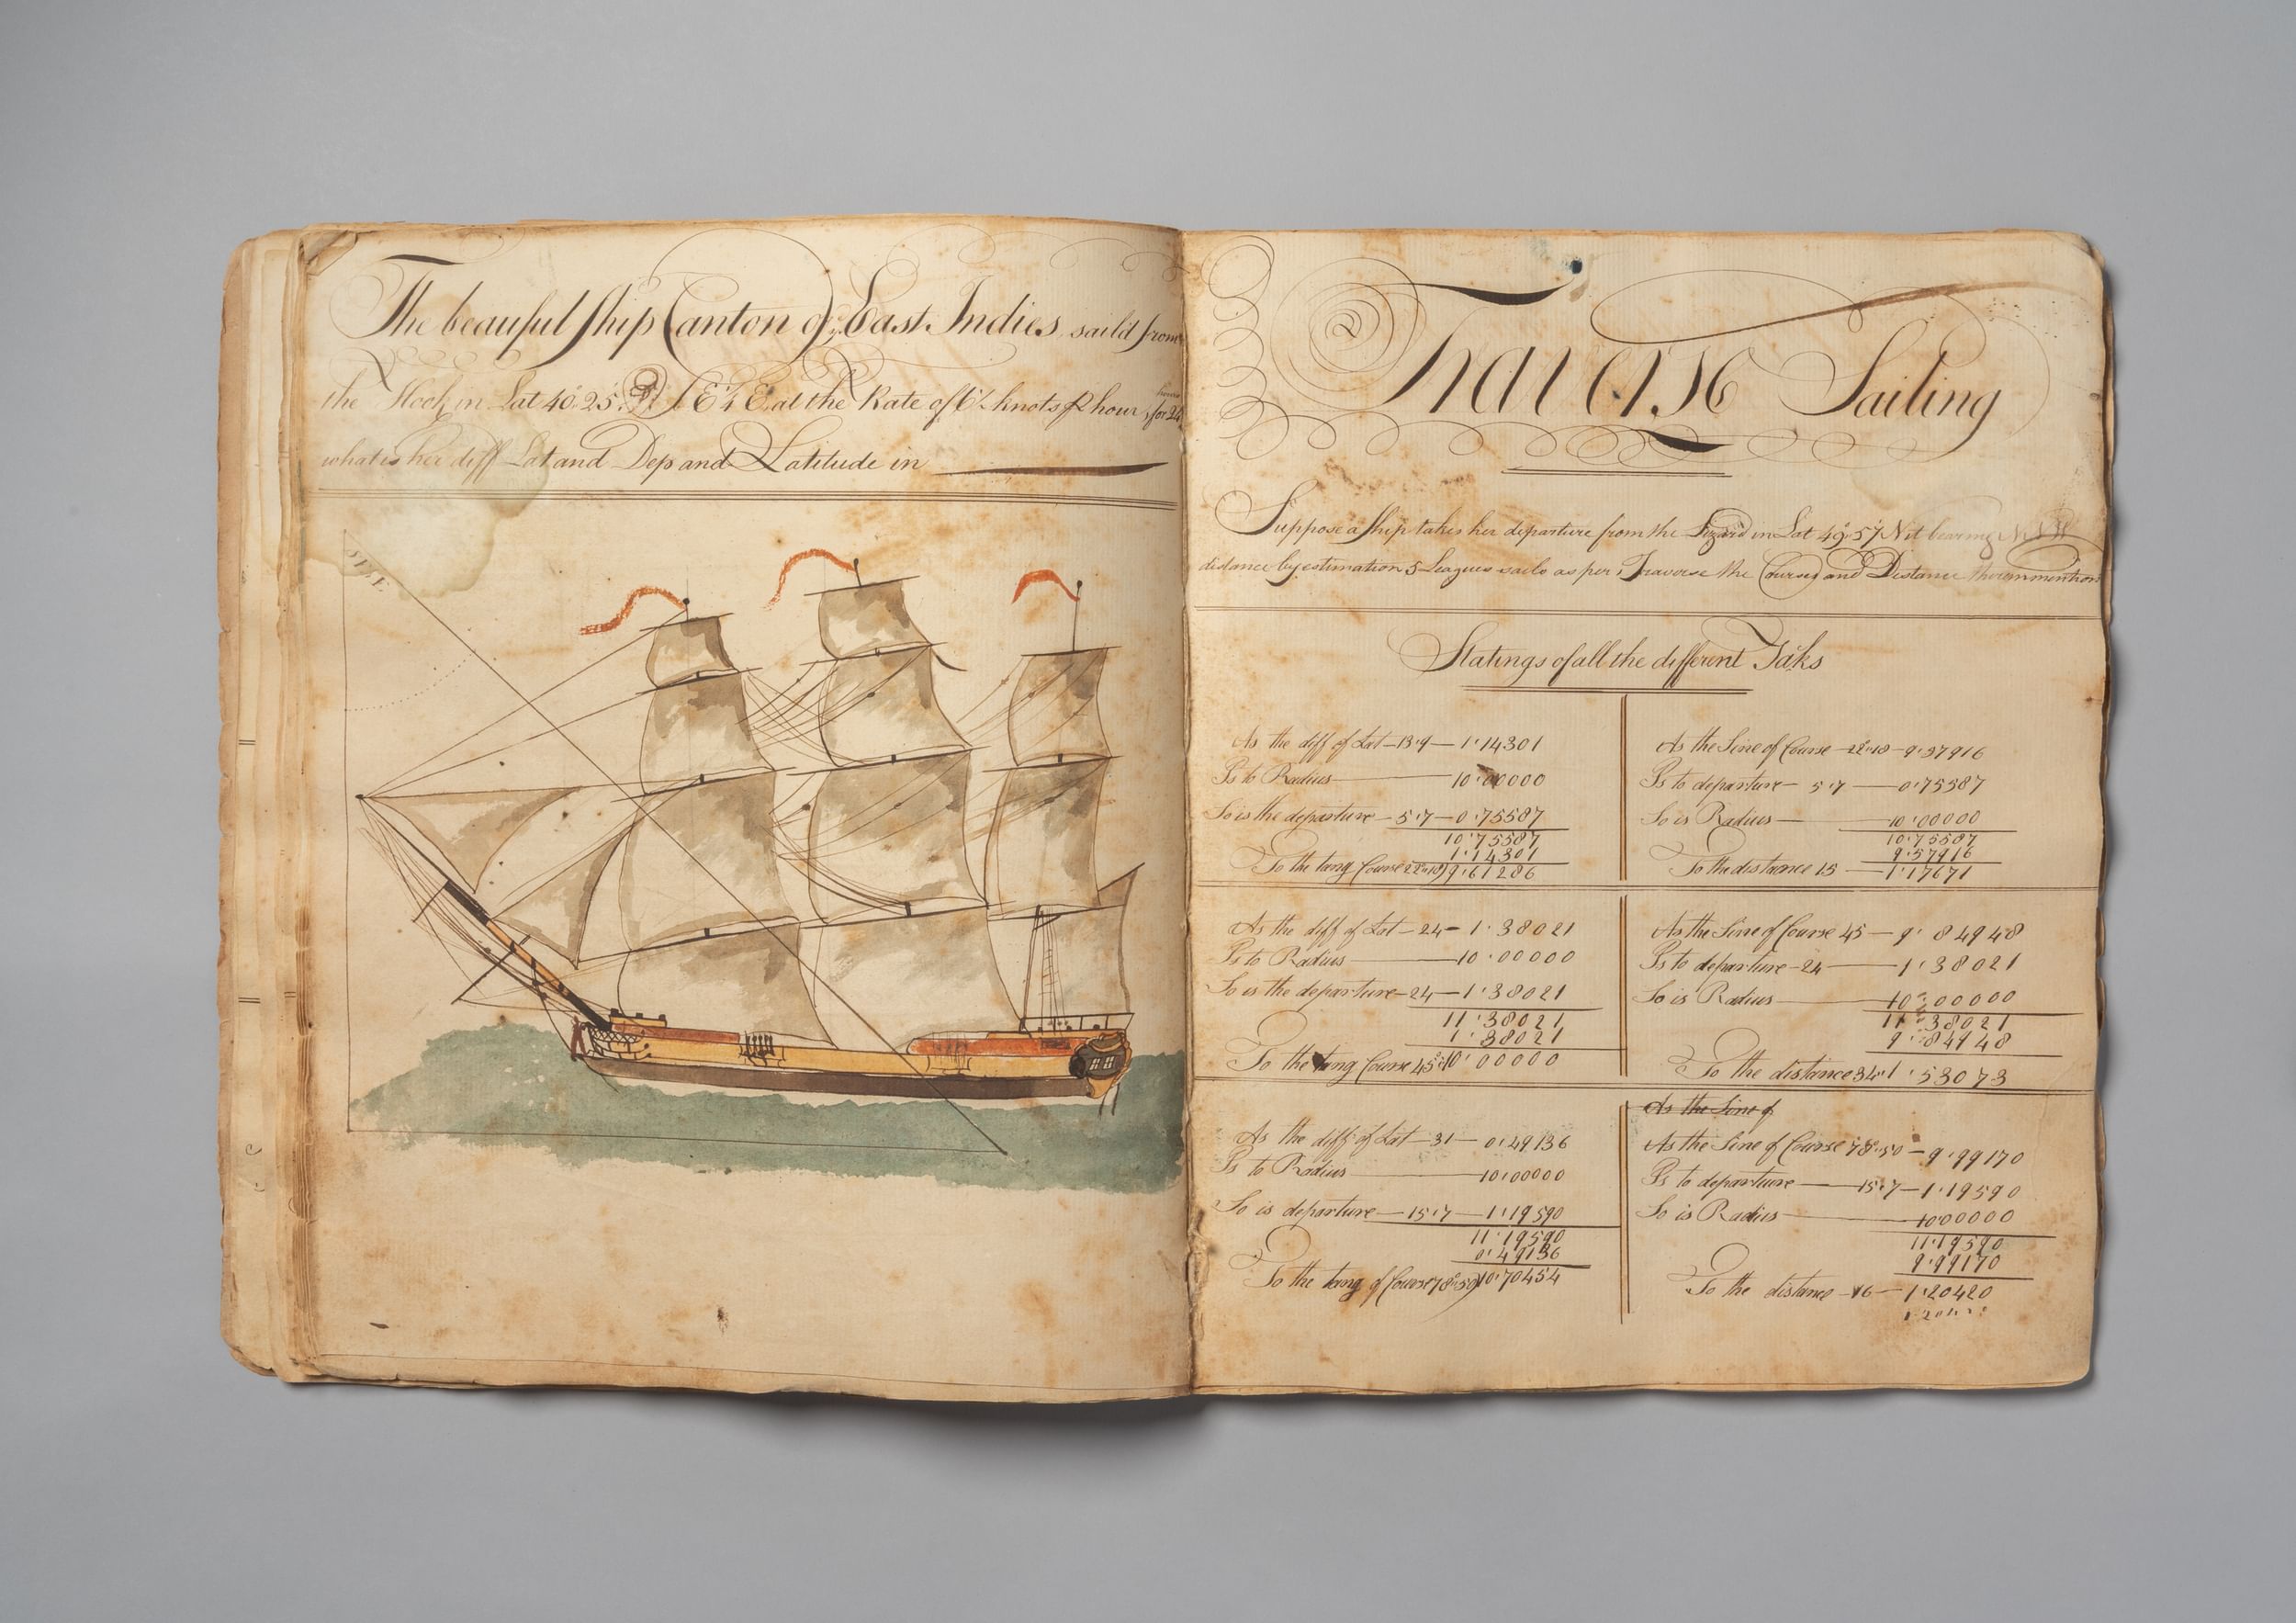 The beauful ship Canton of East Indies saild from
the Hook in Lat 40.25 S E ¼ E at the Rate of 6½ knots hour for 24
hours
what is her diff Lat and Dep and Latitude in
SE¼E
Traverse Sailing
Suppose a ship takes her departure from the Lizard in Lat 49.57 N it bearing
distance by estimation 5 Leagues sails as per Traverse the Courses and Distance
Statings of all the different Taks
As the diff of Lat - 13.9 - 1.14301
Is to Radius - 10.00000
So is the departure - 5.7 - 0.75587
10.75587
1.14301
To the tang Course 22.18) 9.61286
As the Sine of Course - 22.18 - 9.57916
Is to departure - 5.7 - 0.75587
So is Radius - 10.00000
10.75587
9.57916
To the distance 15 - 1.17671
As the diff of Lat - 24 - 1.38021
Is to Radius - 10.00000
So is the departure - 24 - 1.38021
11.38021
1.38021
To the tang Course 45 10.00000
As the Sine of Course 45 - 9.84948
Is to departure - 24 - 1.38021
So is Radius - 10.00000
11.38021
9.84948
To the distance 34 1.53073
As the diff of Lat - 31 - 0.49136
Is to Radius - 10.00000
So is departure - 15.7 - 1.19590
11.19590
0.49136
To the tang of Course 78.50) 10.70454
As the Sine of
As the Sine of Course 78.50 - 9.99170
Is to departure - 15.7 - 1.19590
So is Radius - 10.00000
11.19590
9.99170
To the distance - 16 - 1.20420